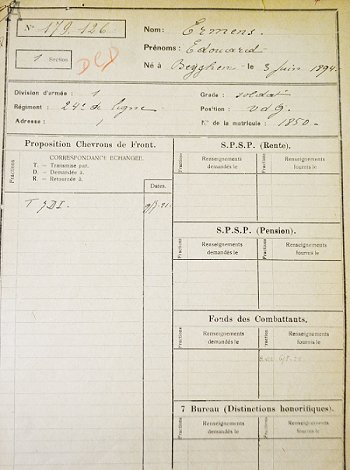 N° 179.126.
1 Section
DCD
Nom: Ermens.
Prénoms: Edouard
Né à Beyghem le 3 juin 1894.
Division d'armée : 1
Grade : soldat
Régiment : 24e de ligne
Position : v d g.
Adresse : 1
N° de la matricule : 1850.
Proposition Chevrons de Front.
CORRESPONDANCE ÉCHANGÉE.
T. — Transmise par.
D. — Demandée à.
R. — Retournée à.
Dates.
S.P.S.P. (Rente).
Fractions
Renseignements demandés le
Renseignements fournis le
S.P.S.P. (Pension).
Fractions
Renseignements demandés le
Renseignements fournis le
Fonds des Combattants.
Fractions
Renseignements demandés le
Renseignements fournis le
7 Bureau (Distinctions honorifiques).
Fractions
Renseignements demandés le
Renseignements fournis le